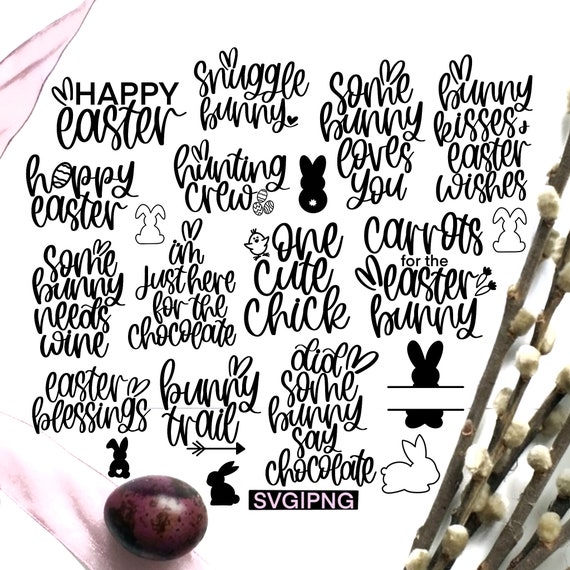 HAPPY
easter
snuggle
bunny
some
bunny
loves
you
bunny
kisses &
easter
wishes
happy
easter
hunting
crew
some
bunny
needs
wine
i'm
just here
for the
chocolate
one
cute
chick
carrots
for the
easter
bunny
easter
blessings
bunny
trail
did
some
bunny
say
chocolate
SVG|PNG